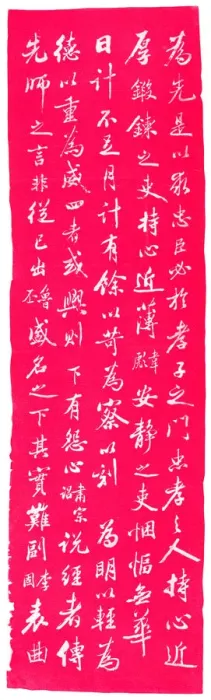 為先是以求忠臣必於孝子之門忠孝之人持心近
厚鍛鍊之吏持心近薄韋彪安靜之吏悃愊無華
日計不足月計有餘以苛為察以刻為明以輕為
德以重為威四者或興則下有怨心肅宗詔說經者傳
先師之言非從己出魯丕盛名之下其實難副李固表曲